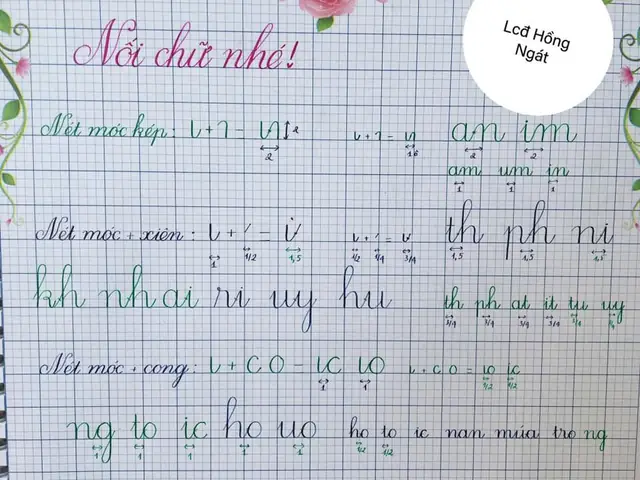 Lcđ Hồng
Ngát
Nối chữ nhé!
Nét móc kép: ι + 1 = n 2 ι + 1 = n an im
2 1,5 2 2
am um in
1 1 1
Nét móc + xiên: ι + / = i ι + / = ν th ph ni
1 1/2 1,5 1/2 1/4 3/4 1,5 1,5 1,5
kh nh ai ri uy hu th ph at it tu uy
3/4 3/4 3/4 3/4 3/4
Nét móc + cong: ι + C O - ιc ιo ι + C O = ιo ιc
1 1 1/2 1/2
ng to ic ho uo ho to ic nan múa trong
1 1 1 1 1 1/2 1/2